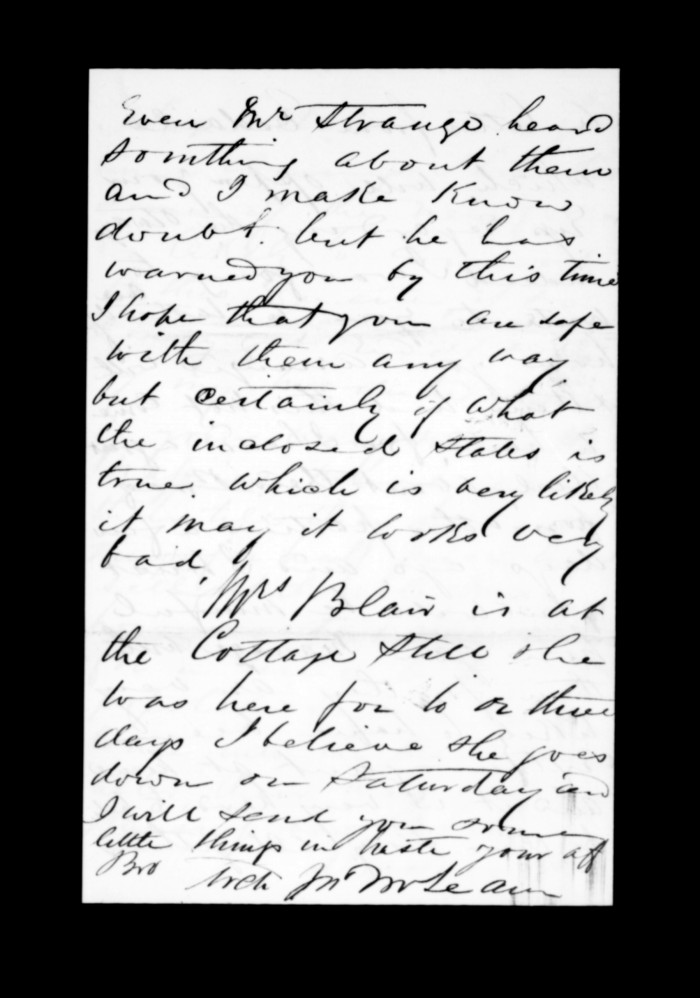 Even Mr Strange heard
somthing about them
and I make know
doubt. but he has
warned you by this time
I hope that you are safe
with them any way
but certainly if what
the inclosed states is
true. which is very likely
it may it looks very
bad.
Mrs Blair is at
the Cottage still she
was here for to or three
days I believe she goes
down on Saturday and
I will send you some
little things in haste your aff
Bro Arch Jn McLean